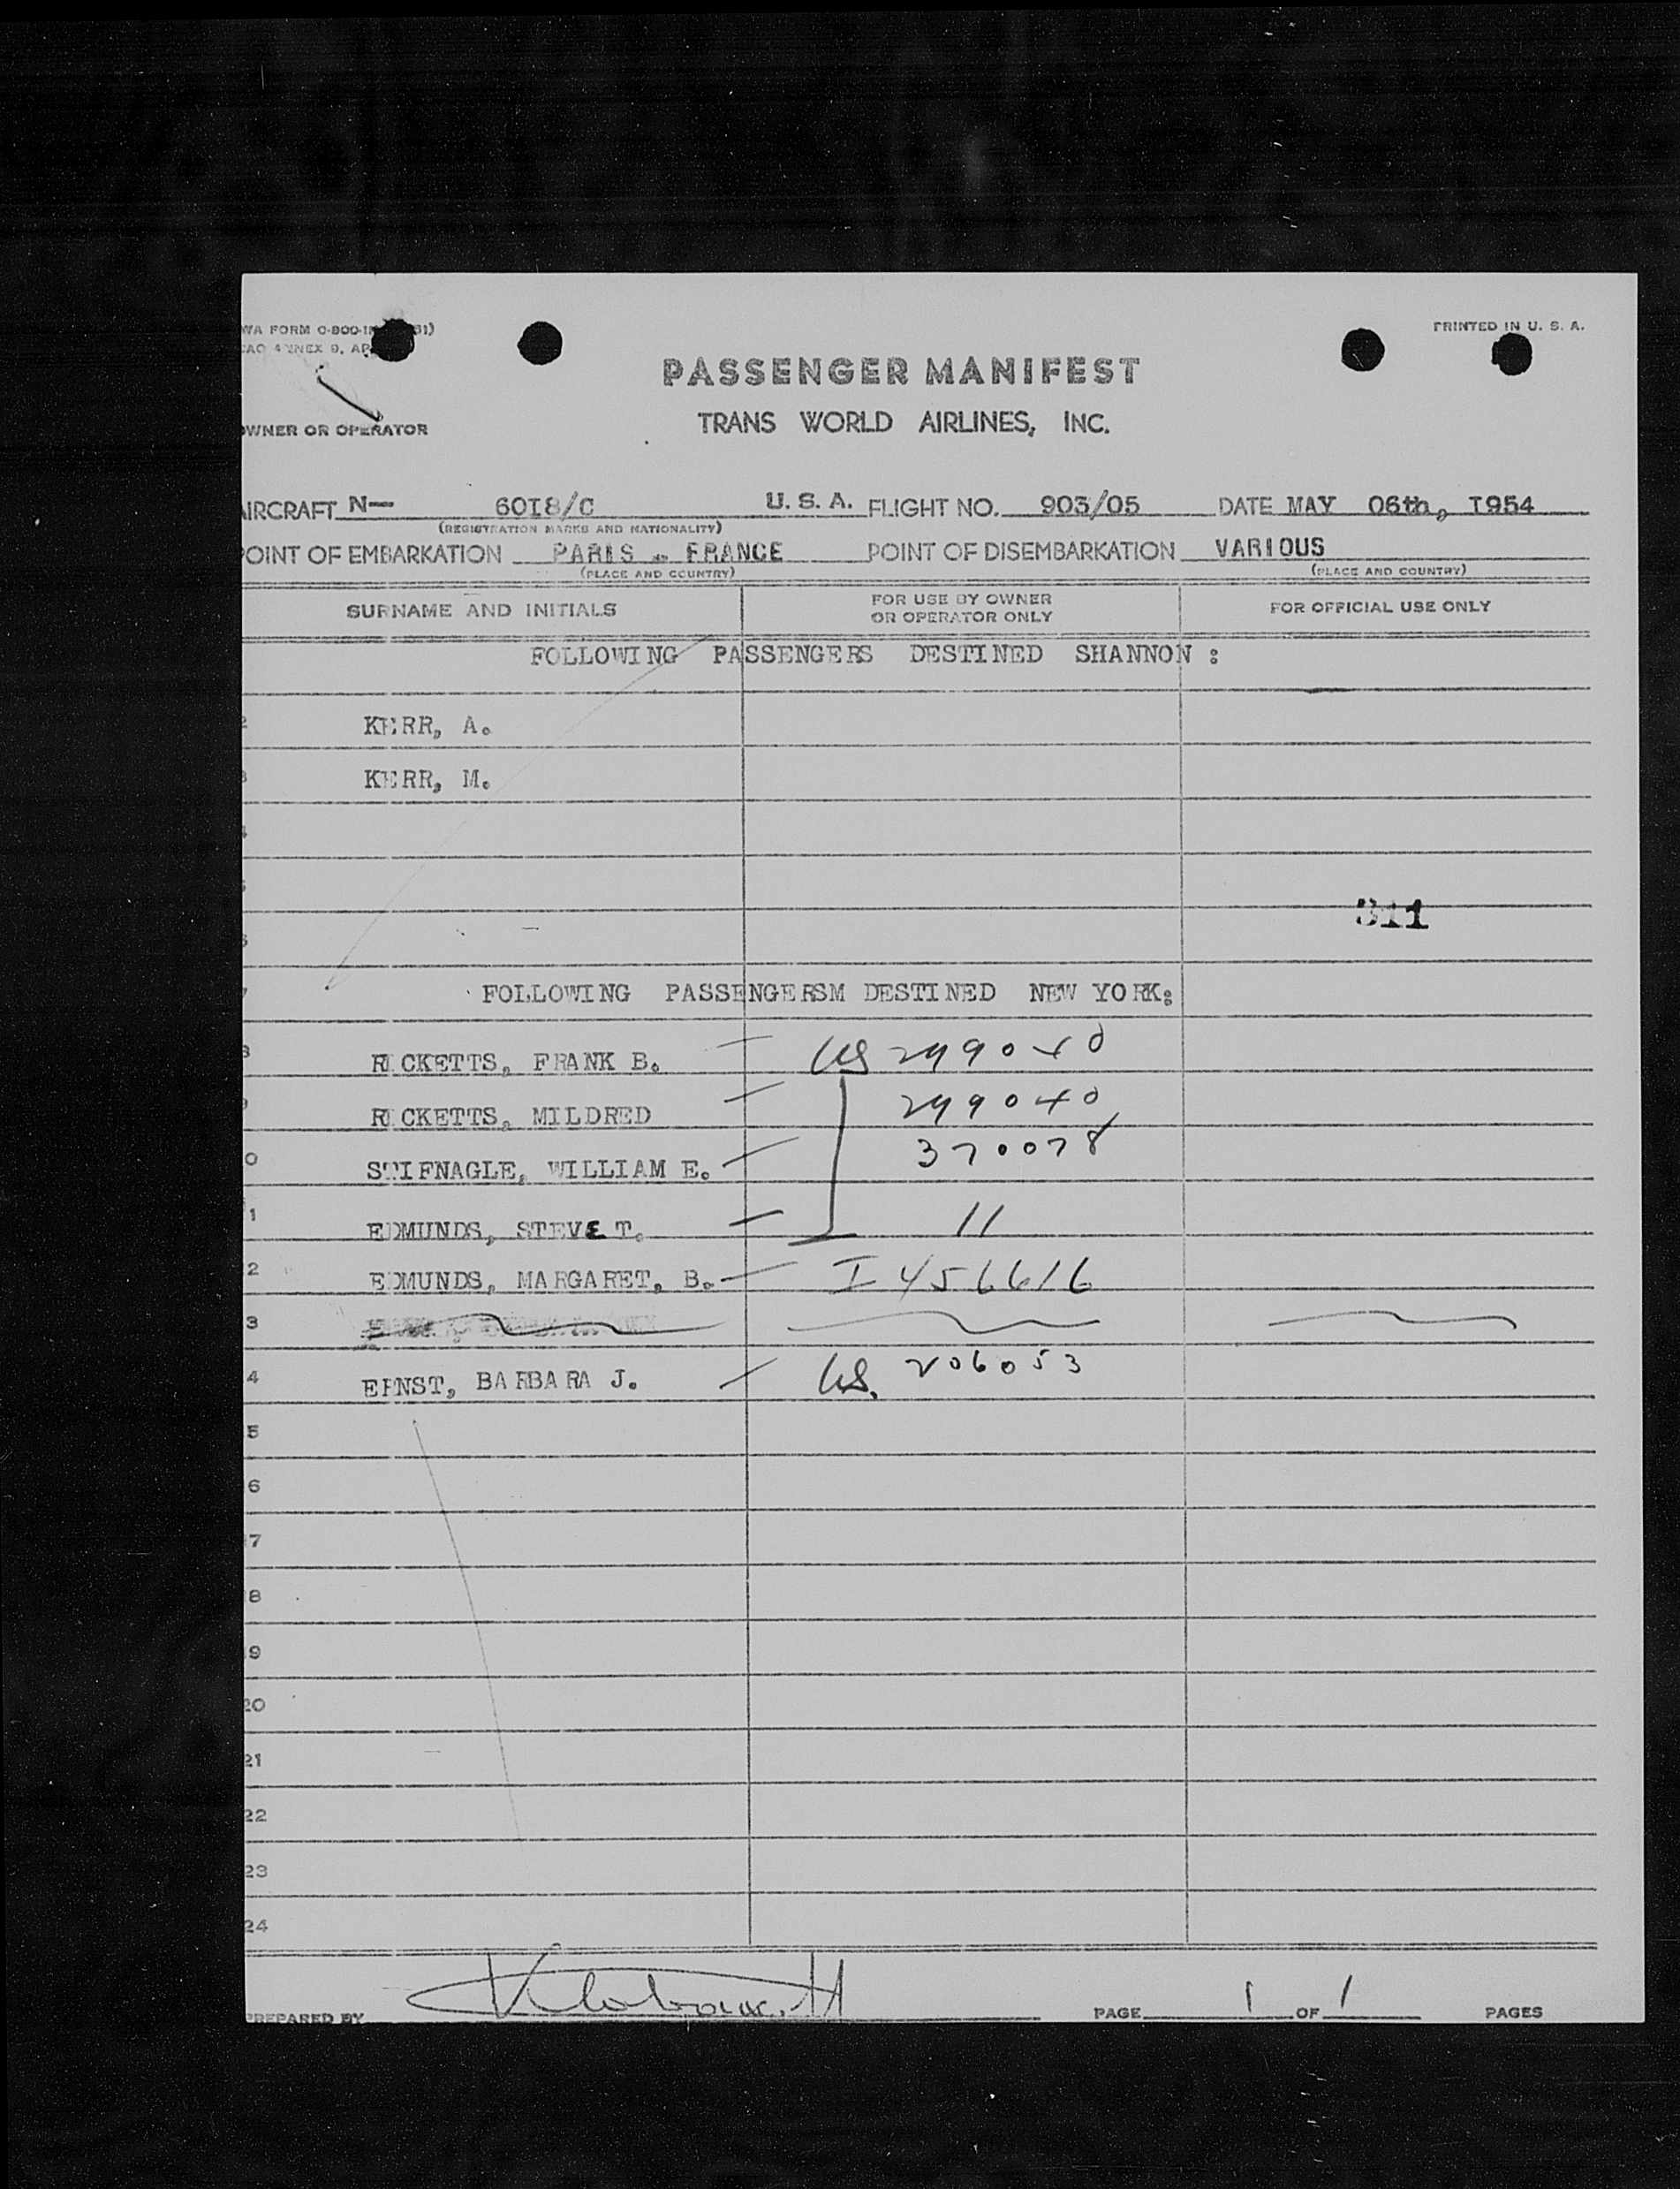 WA FORM O-800-1 51)
PRINTED IN U. S. A.
AO ANNEX 9, AP
PASSENGER MANIFEST
OWNER OR OPERATOR
TRANS WORLD AIRLINES, INC.
AIRCRAFT N- 60I8/C U. S. A. FLIGHT NO. 903/05 DATE MAY 06th, I954
(REGISTRATION MARKS AND NATIONALITY)
POINT OF EMBARKATION PARIS - FRANCE POINT OF DISEMBARKATION VARIOUS
(PLACE AND COUNTRY) (PLACE AND COUNTRY)
SURNAME AND INITIALS FOR USE BY OWNER OR OPERATOR ONLY FOR OFFICIAL USE ONLY
FOLLOWING PASSENGERS DESTINED SHANNON :
2 KERR, A.
3 KERR, M.
4
5
311
6
7 FOLLOWING PASSENGERSM DESTINED NEW YORK:
8 RICKETTS, FRANK B. US 299040
9 RICKETTS, MILDRED 299040
0 STIFNAGLE, WILLIAM E. 370078
1 EDMUNDS, STEVE T. 11
2 EDMUNDS, MARGARET, B. I 456616
3
4 ERNST, BARBARA J. US. 206053
5
6
17
18
19
20
21
22
23
24
PREPARED BY PAGE 1 OF 1 PAGES